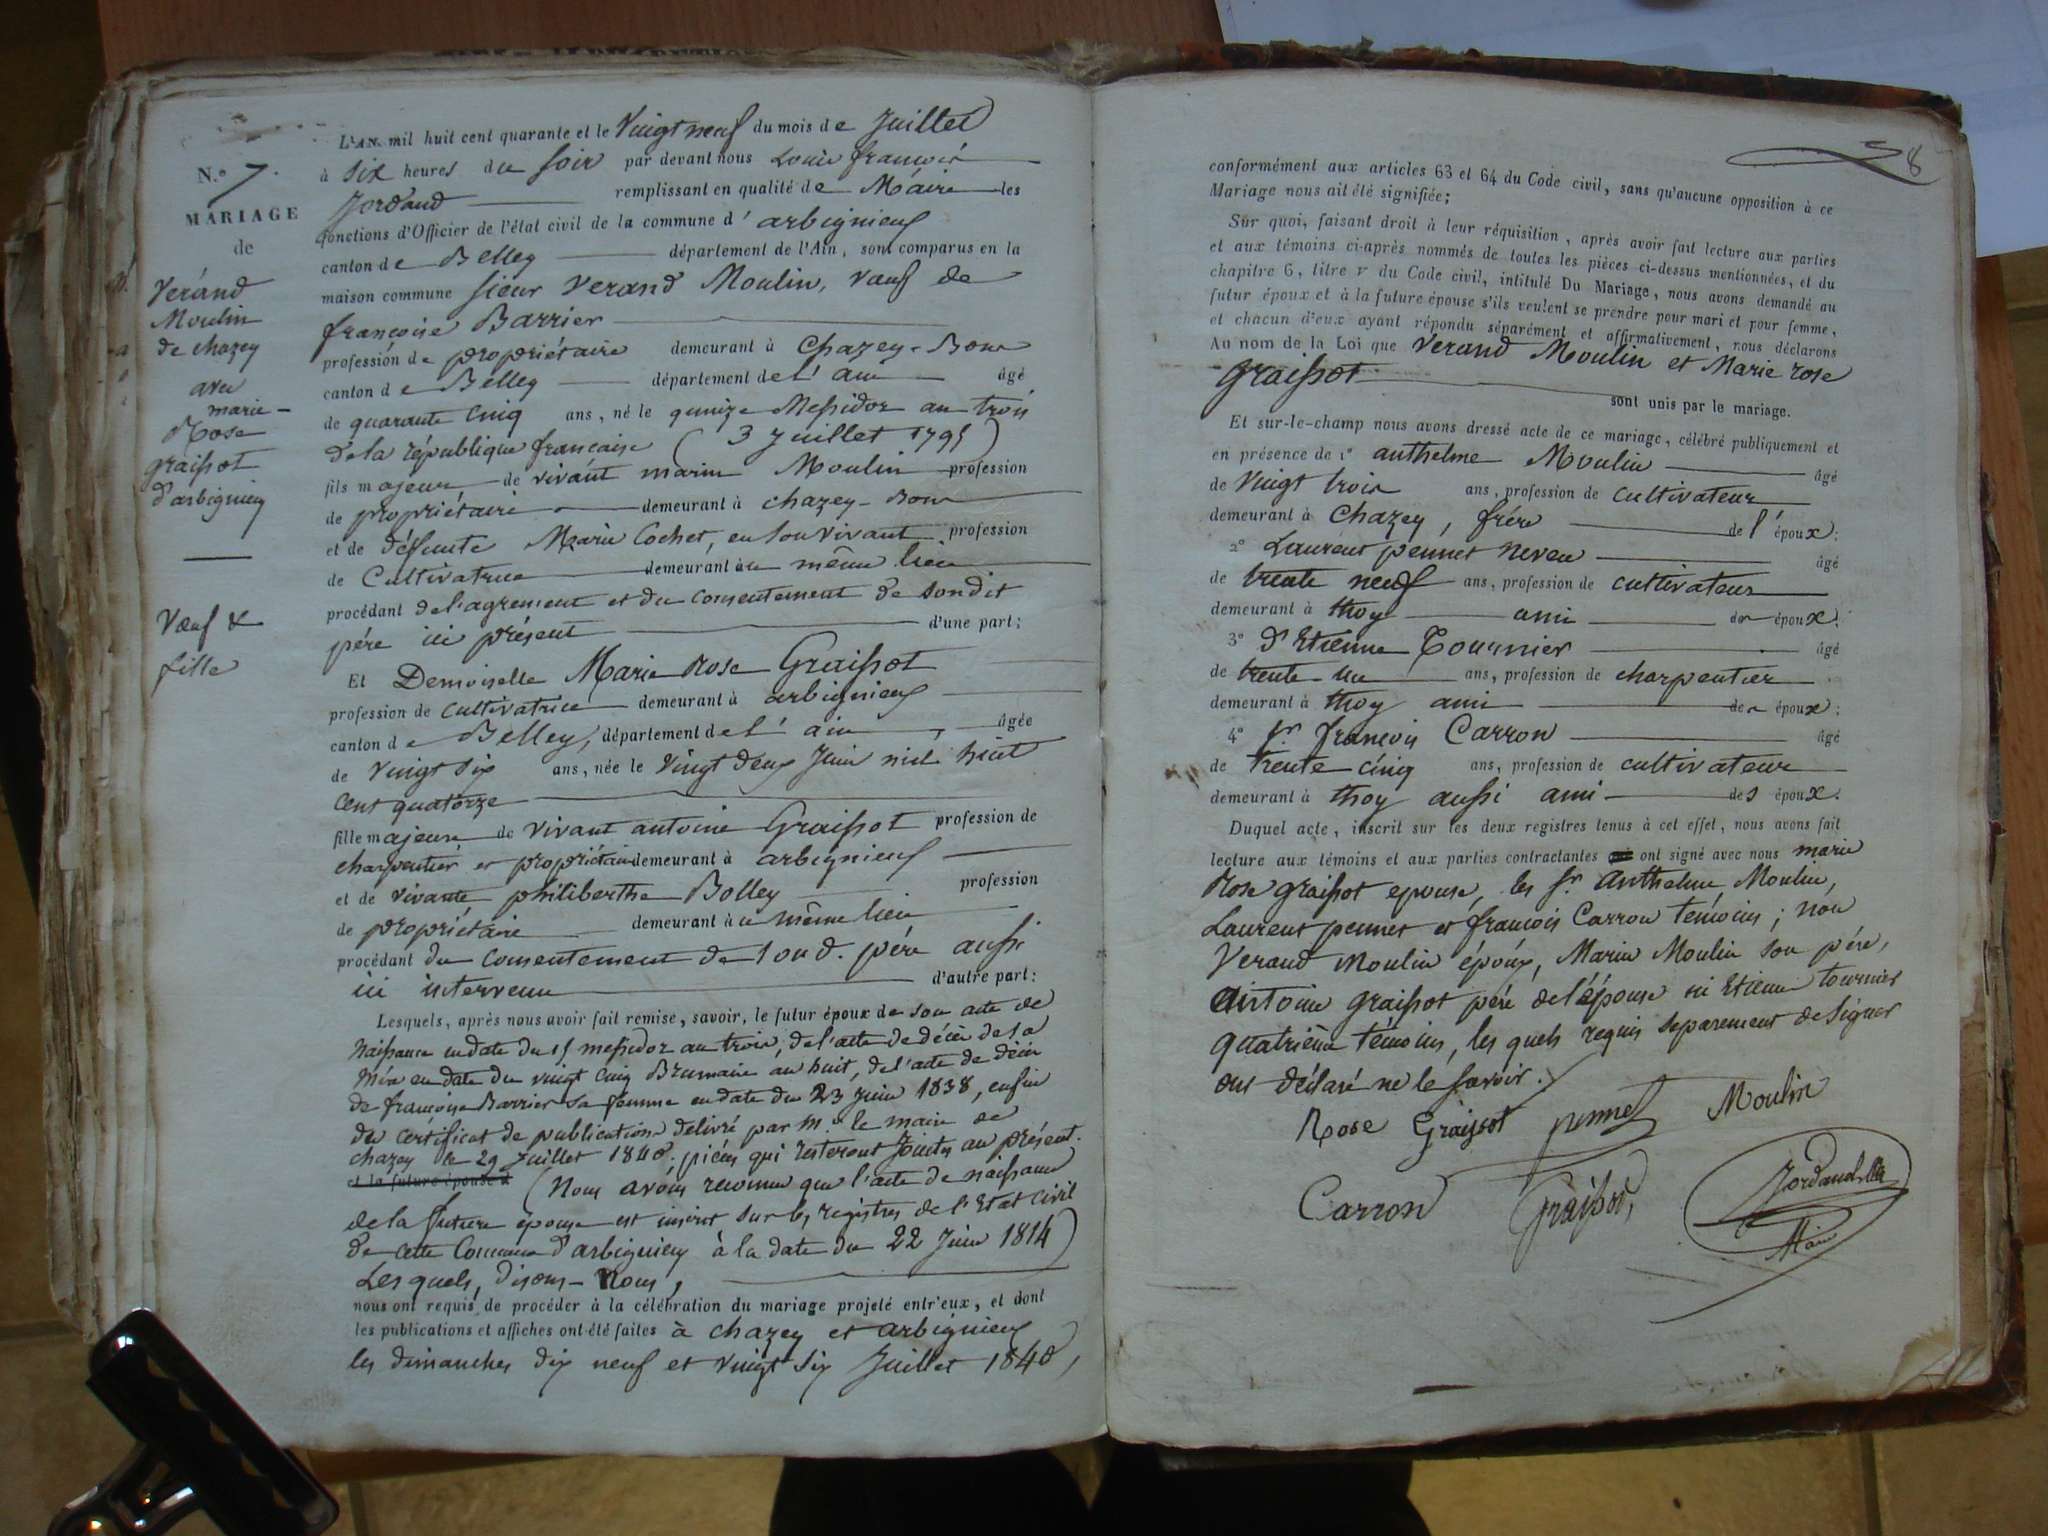 N.° 7.
MARIAGE
de
Vérand
Moulin
de chazey
avec
marie-
Rose
graissot
d'arbignieu
Veuf &
fille
L'AN mil huit cent quarante et le Vingt neuf du mois de Juillet
à six heures du soir par devant nous Louis françois
Jordand remplissant en qualité de Maire les
fonctions d'Officier de l'état civil de la commune d'arbignieu
canton de Belley département de l'Ain, sont comparus en la
maison commune sieur Verand Moulin, vœuf de
françoise Barrier
profession de propriétaire demeurant à Chazey-Bons
canton de Belley département de l'ain âgé
de quarante cinq ans, né le quinze Messidor an trois
de la république française (3 Juillet 1795)
fils majeur de vivant marin Moulin profession
de propriétaire demeurant à chazey-Bons
et de défunte Marie Cochet, en son vivant profession
de Cultivatrice demeurant au même lieu
procédant de l'agrement et du consentement de sondit
père ici présent d'une part;
Et Demoiselle Marie Rose Graissot
profession de cultivatrice demeurant à arbignieu
canton de Belley, département de l'ain, âgée
de vingt six ans, née le vingt deux Juin mil huit
cent quatorze
fille majeure de vivant antoine Graissot profession de
charpentier et propriétaire demeurant à arbignieu
et de vivante philiberthe Bolley profession
de propriétaire demeurant au même lieu
procédant du consentement de sond. père aussi
ici intervenu d'autre part;
Lesquels, après nous avoir fait remise, savoir, le futur époux de son acte de
Naissance en date du 15 messidor an trois, de l'acte de décès de sa
mère en date du vingt cinq Brumaire an huit, de l'acte de décès
de françoise Barrier sa femme en date du 23 Juin 1838, enfin
du certificat de publication délivré par m. le maire de
chazey le 29 Juillet 1840. pièces qui resteront Jointes au présent.
et la future épouse d (Nous avons reconnu que l'acte de naissance
de la future épouse est inscrit sur les registres de l'Etat civil
de cette Commune d'arbignieu à la date du 22 Juin 1814)
Lesquels, disons-Nous,
nous ont requis de procéder à la célébration du mariage projeté entr'eux, et dont
les publications et affiches ont été faites à chazey et arbignieu
les dimanches dix neuf et vingt six Juillet 1840,
8
conformément aux articles 63 et 64 du Code civil, sans qu'aucune opposition à ce
Mariage nous ait été signifiée;
Sur quoi, faisant droit à leur réquisition, après avoir fait lecture aux parties
et aux témoins ci-après nommés de toutes les pièces ci-dessus mentionnées, et du
chapitre 6, titre v du Code civil, intitulé Du Mariage, nous avons demandé au
futur époux et à la future épouse s'ils veulent se prendre pour mari et pour femme,
et chacun d'eux ayant répondu séparément et affirmativement, nous déclarons
Au nom de la Loi que Verand Moulin et Marie rose
graissot
sont unis par le mariage.
Et sur-le-champ nous avons dressé acte de ce mariage, célébré publiquement et
en présence de 1° anthelme Moulin âgé
de Vingt trois ans, profession de cultivateur
demeurant à Chazey, frère de l'époux;
2° Laurent pennet neveu âgé
de trente neuf ans, profession de cultivateur
demeurant à thoy ami des époux;
3° S. Etienne Tournier âgé
de trente un ans, profession de charpentier
demeurant à thoy ami des époux;
4° Sr françois Carron âgé
de trente cinq ans, profession de cultivateur
demeurant à thoy aussi ami des époux.
Duquel acte, inscrit sur les deux registres tenus à cet effet, nous avons fait
lecture aux témoins et aux parties contractantes ont signé avec nous marie
Rose graissot épouse, les Sr. Anthelme Moulin,
Laurent pennet et françois Carron témoins; non
Verand Moulin époux, Marin Moulin son père,
antoine graissot père de l'épouse ni Etienne tournier
quatrième témoins, les quels requis separement de signer
ont déclaré ne le savoir.
Rose Graissot pennet Moulin
Carron Graissot, Jordand
Maire